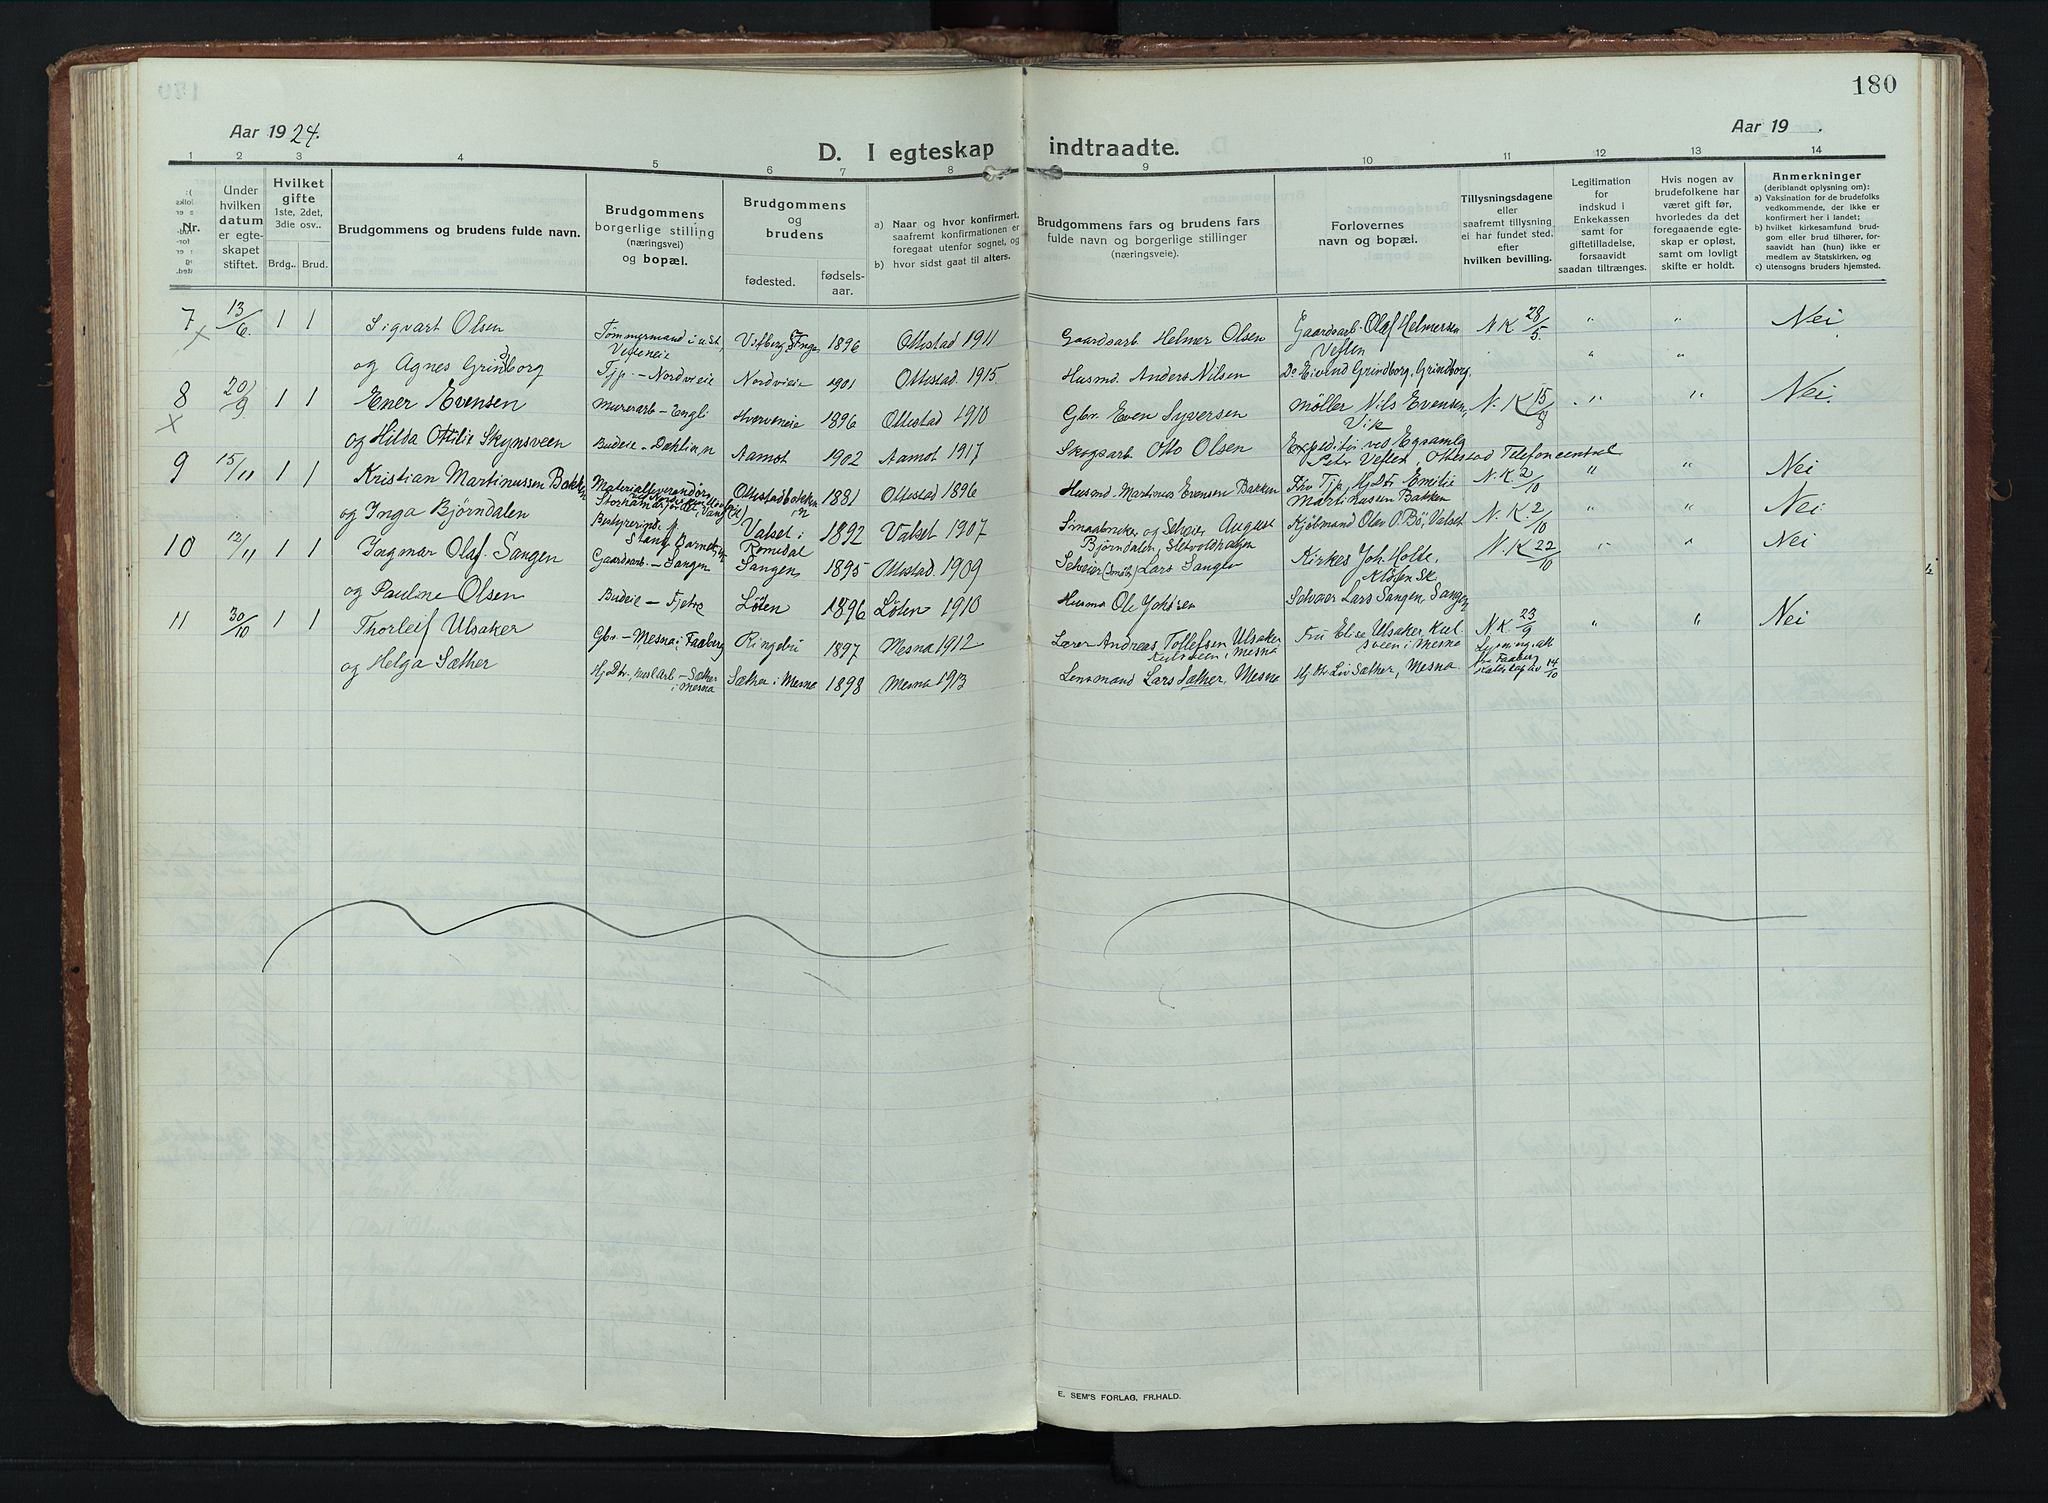 180
Aar 1924.
Aar 19 .
D. I egteskap indtraadte.
1 2 3 4 5 6 7 8 9 10 11 12 13 14
Nr.
Under hvilken datum er egteskapet stiftet.
Hvilket gifte 1ste, 2det, 3die osv.. Brdg.. Brud.
Brudgommens og brudens fulde navn.
Brudgommens borgerlige stilling (næringsvei) og bopæl.
Brudgommens og brudens fødested. fødselsaar.
a) Naar og hvor konfirmert, saafremt konfirmationen er foregaat utenfor sognet, og
b) hvor sidst gaat til alters.
Brudgommens fars og brudens fars fulde navn og borgerlige stillinger (næringsveie).
Forlovernes navn og bopæl.
Tillysningsdagene eller saafremt tillysning ei har fundet sted. efter hvilken bevilling.
Legitimation for indskud i Enkekassen samt for giftetilladelse, forsaavidt saadan tiltrænges.
Hvis nogen av brudefolkene har været gift før, hvorledes da det foregaaende egteskap er opløst, samt om lovligt skifte er holdt.
Anmerkninger (deriblandt oplysning om): a) Vaksination for de brudefolks vedkommende, der ikke er konfirmert her i landet; b) hvilket kirkesamfund brudgom eller brud tilhører, forsaavidt han (hun) ikke er medlem av Statskirken, og c) utensogns bruders hjemsted.
7 13/6 1 1 Sigvart Olsen Tømmermand Vefleneie 1896 Ottestad 1911 Gaardsarb Helmer Olsen Gaardsarb. Olaf Helmersen Veflen N K 28/5 " " Nei
og Agnes Grindborg Tjp. – Nordvieie Nordvieie 1901 Ottestad. 1915. Husmd. Anders Nilsen Do Eivind Grindborg, Grindborg " "
8 20/9 1 1 Ener Evensen Murerarb – Engli 1896 Ottestad 1910 Gbr. Even Syversen Møller Nils Evensen, Vik N. K 15/8 " " Nei
og Hilda Ottilie Skynsveen Budeie – Dæhlin Aamot 1902 Aamot 1917 Skogsarb Otto Olsen Peter Veflen, Ottestad Telefoncentral
9 15/11 1 1 Kristian Martinussen Bakken Materialleverandør Ottestadbakken 1881 Ottestad 1896 Husmd. Martinus Evensen Bakken Emilie Martinussen Bakken N. K. 2/10 " " Nei
og Inga Bjørndalen Bestyrerinde Valset i Romedal 1892 Valset 1907 Smaabruker og Selveier August Bjørndalen Kjøbmand Olav O. Bø, Valset N. K. 2/10 " " Nei
10 12/11 1 1 Ingmar Olaf Sangen Gaardsarb. – Sangen Sangen 1895 Ottestad. 1909 Selveier Lars Sangen Kirkes. Joh. Holte, N. K 22/10 " Nei
og Pauline Olsen Budeie – Fjetre Løten 1896 Løten 1910 Husma Ole Selveier Lars Sangen, Sangen
11 30/10 1 1 Thorleif Ulsaker Gbr. – Mesna i Faaberg Ringebu 1897 Mesna 1912 Lærer Andreas Tollefsen Ulsaker Kulsveen i Mesna Fru Elise Ulsaker, Kulsveen i Mesna N K 23/9 " " Nei
og Helga Sæther Sæther i Mesna Sæther i Mesna 1898 Mesna 1913 Lensmand Lars Sæther, Mesna Liv Sæther, Mesna. Faaberg 14/10
E. SEM'S FORLAG, FR.HALD.